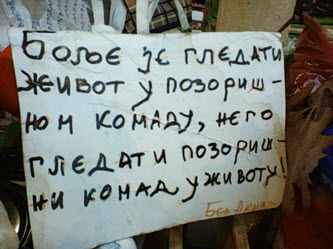 Боље је гледати
живот у позориш-
ном комаду, него
гледати позориш-
ни комад у животу!